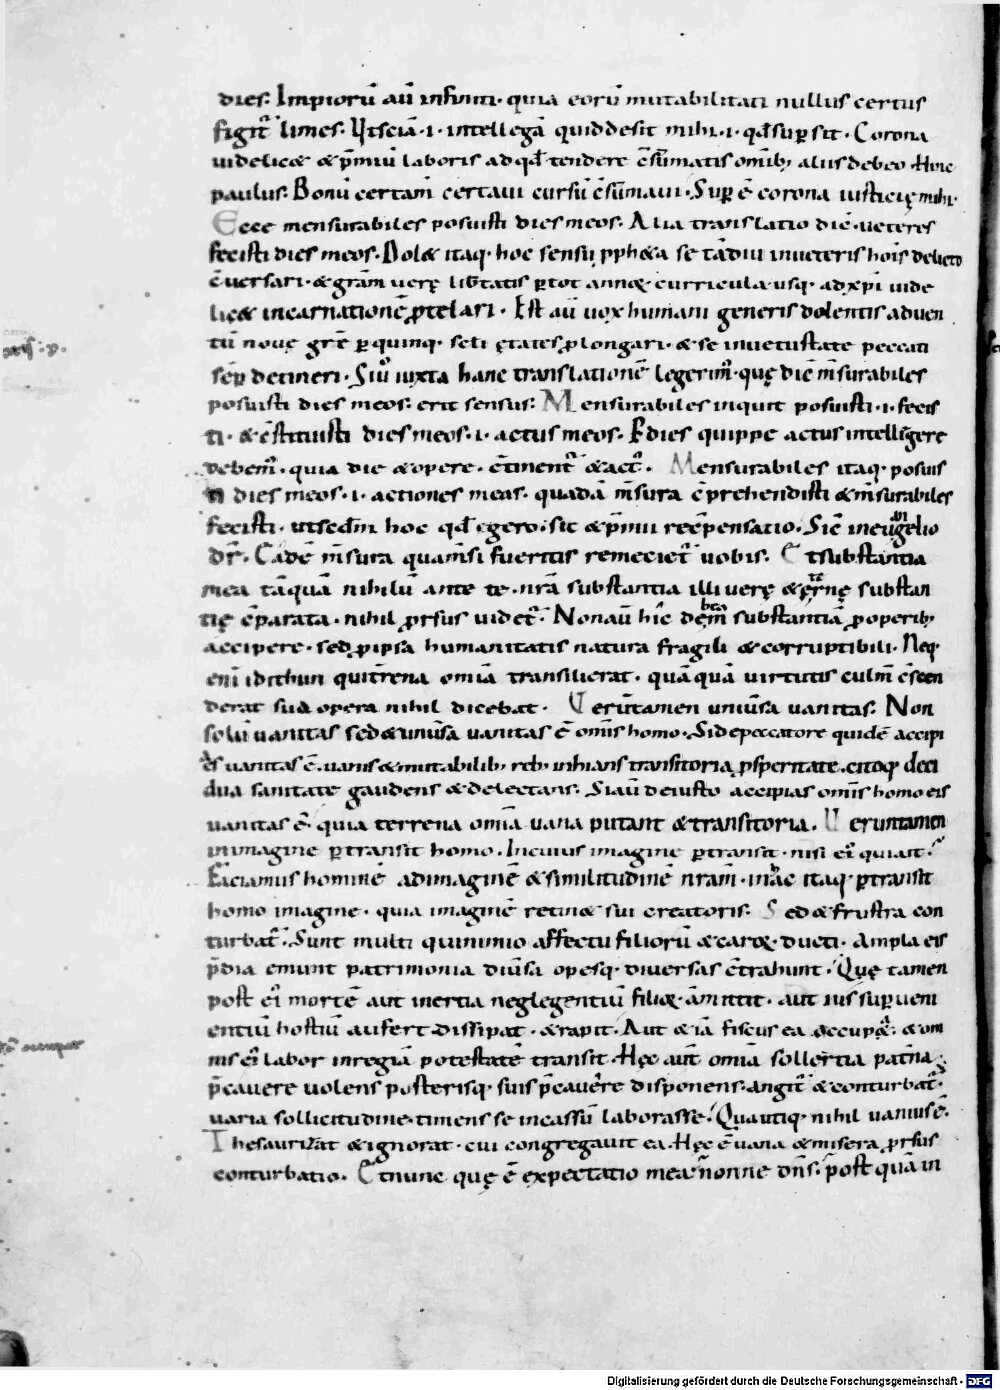 dies. Impiorū aū infiniti. quia eorū mutabilitati nullus certus
figit᷑ limes. Ut sciā .i. intellegā quid desit mihi .i. qđ sup̄ sit. Corona
videlicæ & p̄miū laboris ad qđ tendere c̄sūmatis omnib; aliis debeo. Hinc
paulus. Bonū certam̄ certavi cursū c̄sūmavi. Sup̄ ē corona iusticię mihi.
Ecce mensurabiles posuisti dies meos. Alia translatio dic̄ veteres
fecisti dies meos. Dolæ itaq. hoc sensu ppħæa se tādiu in veteris hois delicto
c̄versari. & grām verę libtatis p̱tot annoꝝ curricula usq. ad xp̄i vide
licæ incarnationē p̱telari. Est aū vox humani generis dolentis adven
tū novę grē p̱ quinq. scli ętates p̱longari. & se in vetustate peccati
sēp detineri. Siū iuxta hanc translationē legerim᷑. quę dic̄ m̄surabiles
posuisti dies meos. erit sensus. Mensurabiles inquit posuisti .i. fecis
ti. & c̄stituisti dies meos .i. actus meos. P̱ dies quippe actus intelligere
debem᷑. quia die & opere. c̄tinent᷑ & act᷑. Mensurabiles itaq. posuis
ti dies meos .i. actiones meas. quadā m̄sura c̄prehendisti & m̄surabiles
fecisti. ut scdm̄ hoc qđ egero. sit & p̄mii rec̄pensatio. Sic̄ in euangelio
dr̄. Eadē m̄sura qua m̄si fueritis remeciet᷑ vobis. Et substantia
mea tāquā nihilū ante te. nr̄a substantia illi verę & ęternę substan
tię c̄parata. nihil p̱rsus videt᷑. Non aū hic debem᷑ substantiā p̱ operib;
accipere. sed p̱ ipsa humanitatis natura fragili & corruptibili. Neq.
eni idithun qui t̄rena omīa transilierat. quāquā virtutis culm̄ c̄scen
derat sua opera nihil dicebat. Verūtamen univ̄sa vanitas. Non
solū vanitas sed & univ̄sa vanitas ē omis homo. Si de peccatore quidē accipi
es vanitas ē. vanis & mutabilib; reb; inhians transitoria p̱speritate. citoq. deci
dua sanitate gaudens & delectans. Si aū de iusto accipias omīs homo eis
vanitas ē. quia terrena omīa vana putant & transitoria. Veruntamen
in imagine p̱transit homo. In cuius imagine p̱transit. nisi ei᷑ qui ait.
Faciamus hominē ad imaginē & similitudinē nr̄am. in hac itaq. p̱transit
homo imagine. quia imaginē retinæ sui creatoris. Sed & frustra con
turbat᷑. Sunt multi qui nimio affectu filiorū & caroꝝ ducti. Ampla eis
p̄dia emunt patrimonia div̄sa opesq. diversas c̄trahunt. Quę tamen
post ei᷑ mortē aut inertia neglegentiū filioꝝ amittit. aut ius supveni
entiū hostiū aufert dissipat. & rapit. Aut & iā fiscus ea occupæ. & om
nis ei᷑ labor in regiā potestatē transit. Hęc aut omīa sollertia pat̄na
p̄cavere volens posterisq. suis p̄cavere disponens. angit᷑ & conturbat᷑.
varia sollicitudine. timens se in cassū laborasse. Qua utiq. nihil vanius ē.
Thesaurizat & ignorat. cui congregavit ea. Hęc ē vana & misera p̱rsus
conturbatio. Et nunc quę ē expectatio mea. nonne dn̄s. post quā in